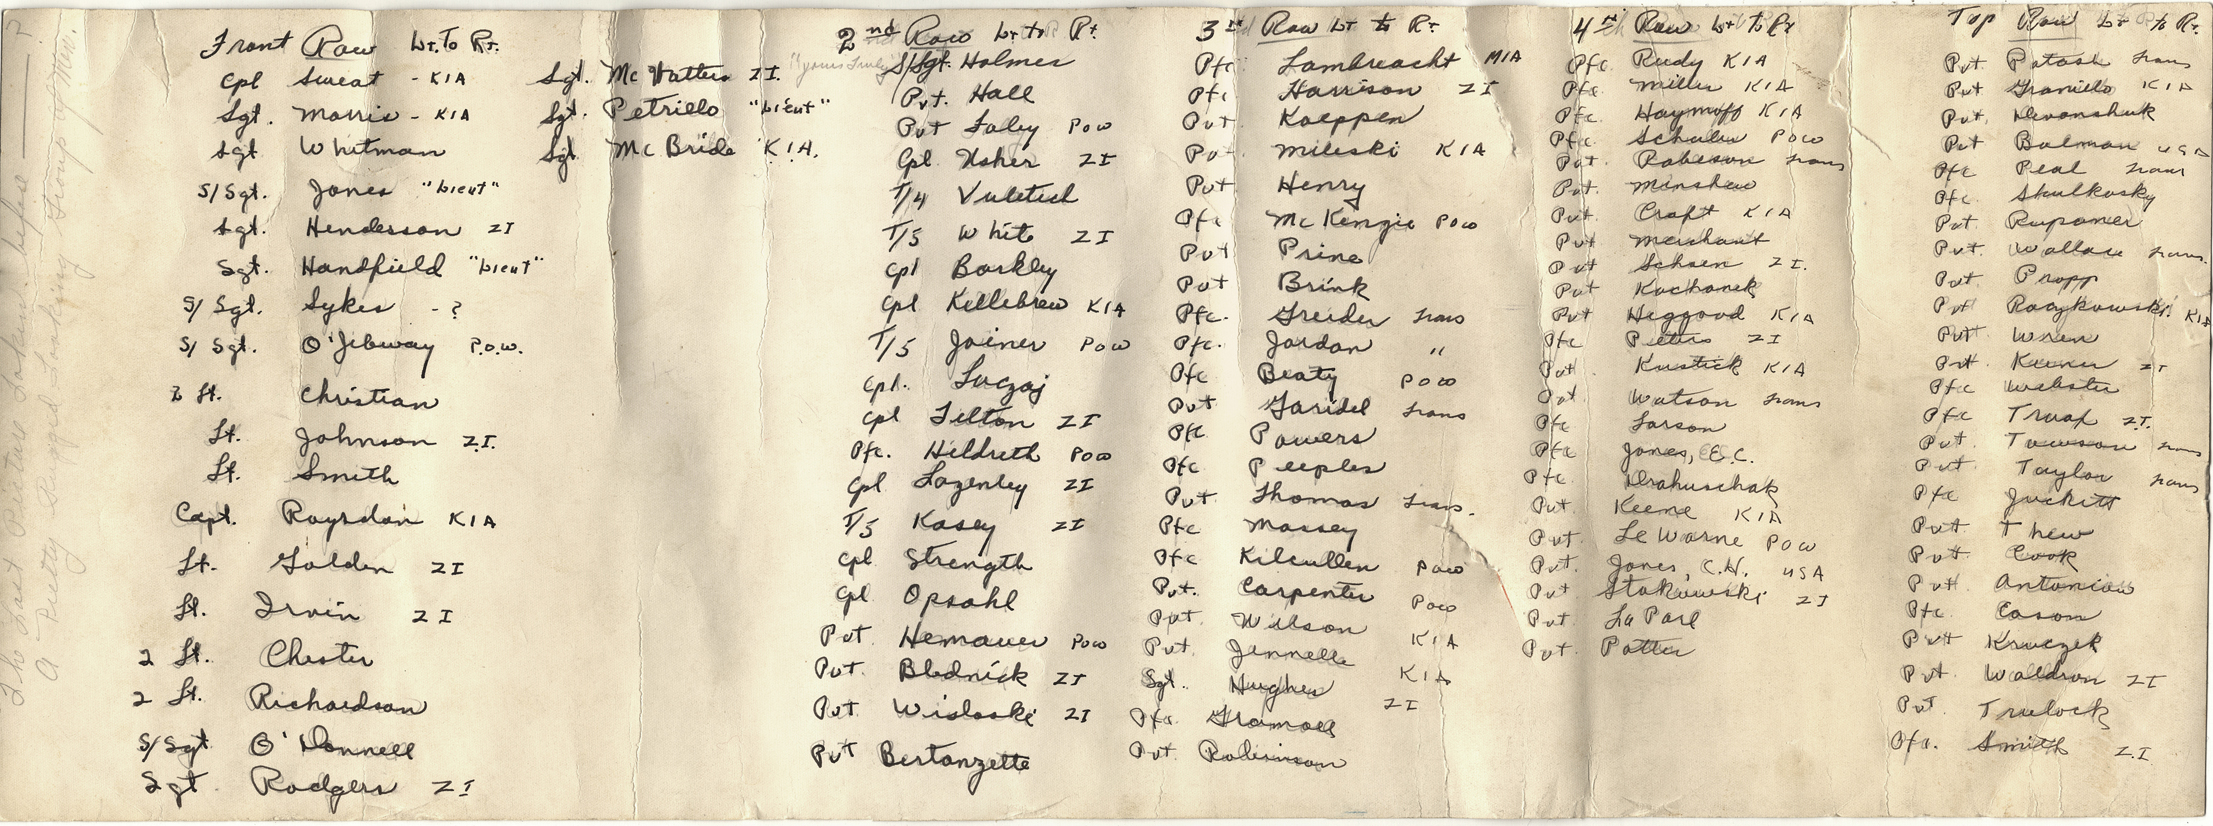 The Last Picture Taken before ——— ?
A Pretty Rugged Looking Group of Men.
Front Row Lt. To Rt.
Cpl Sweat - KIA
Sgt. Morris - KIA
Sgt Whitman
S/Sgt. Jones "Lieut"
Sgt. Henderson ZI
Sgt. Handfield "Lieut"
S/Sgt. Sykes - ?
S/Sgt. O'Jibway P.O.W.
2 Lt. Christian
Lt. Johnson Z.I.
Lt. Smith
Capt. Roysdon KIA
Lt. Golden ZI
Lt. Irvin ZI
2 Lt. Chester
2 Lt. Richardson
S/Sgt O'Donnell
Sgt Rodgers ZI
Sgt. McVatters Z.I.
Sgt. Petrillo "Lieut"
Sgt. McBride K.I.A.
2nd Row Lt to Rt.
"yours Truly" S/Sgt. Holmes
Pvt. Hall
Pvt Foley POW
Cpl Usher ZI
T/4 Vuletich
T/5 White ZI
Cpl Barkley
Cpl Killebrew KIA
T/5 Joiner POW
Cpl. Luczaj
Cpl Tilton ZI
Pfc. Hildreth POW
Cpl Lazenley ZI
T/5 Kasey ZI
Cpl Strength
Cpl Opsahl
Pvt. Hemauer POW
Pvt. Blednick ZI
Pvt. Wisloski ZI
Pvt Bertanzette
3rd Row Lt to Rt.
Pfc Lambreacht MIA
Pfc Harrison ZI
Pvt. Koeppen
Pvt Mileski KIA
Pvt Henry
Pfc McKenzie POW
Pvt Prine
Pvt Brink
Pfc. Greider Trans
Pfc. Jordan "
Pfc Beaty POW
Pvt Garidel Trans
Pfc Powers
Pfc Peeples
Pvt. Thomas Trans.
Pfc Massey
Pfc Kilcullen POW
Pvt. Carpenter POW
Pvt. Wilson KIA
Pvt. Jennelle KIA
Sgt. Hughes ZI
Pfc. Gramoll
Pvt Robinson
4th Row Lt to Rt
Pfc. Rudy KIA
Pfc. Miller KIA
Pfc. Haymoff KIA
Pfc Schuler POW
Pvt. Robeson Trans
Pvt Minshew
Pvt. Craft KIA
Pvt Merchant
Pvt Schoen Z.I.
Pvt Kochanek
Pvt Heggood KIA
Pfc Pettis ZI
Pvt. Kustick KIA
Pvt Watson Trans
Pfc Larson
Pfc Jones, E.C.
Pfc Drahuschak
Pvt Keene KIA
Pvt. LeWarne POW
Pvt. Jones, C.H. USA
Pvt Stokowski ZI
Pvt. LaPorl
Pvt. Potter
Top Row Lt to Rt.
Pvt Potash Trans
Pvt Graniello KIA
Pvt Devonshuk
Pvt Bolman USA
Pfc Peal Trans
Pfc Shulkosky
Pvt Rupamer
Pvt. Wallace Trans.
Pvt. Propp
Pvt Rozykowski KIA
Pvt Wren
Pvt Keener ZI
Pfc Webster
Pfc Truax Z.I.
Pvt. Towson Trans
Pvt. Taylor Trans
Pfc Juckett
Pvt Thew
Pvt Cook
Pvt Antoniou
Pfc Eason
Pvt Kruczek
Pvt Waldron ZI
Pvt. Trulock
Pfc. Smith Z.I.